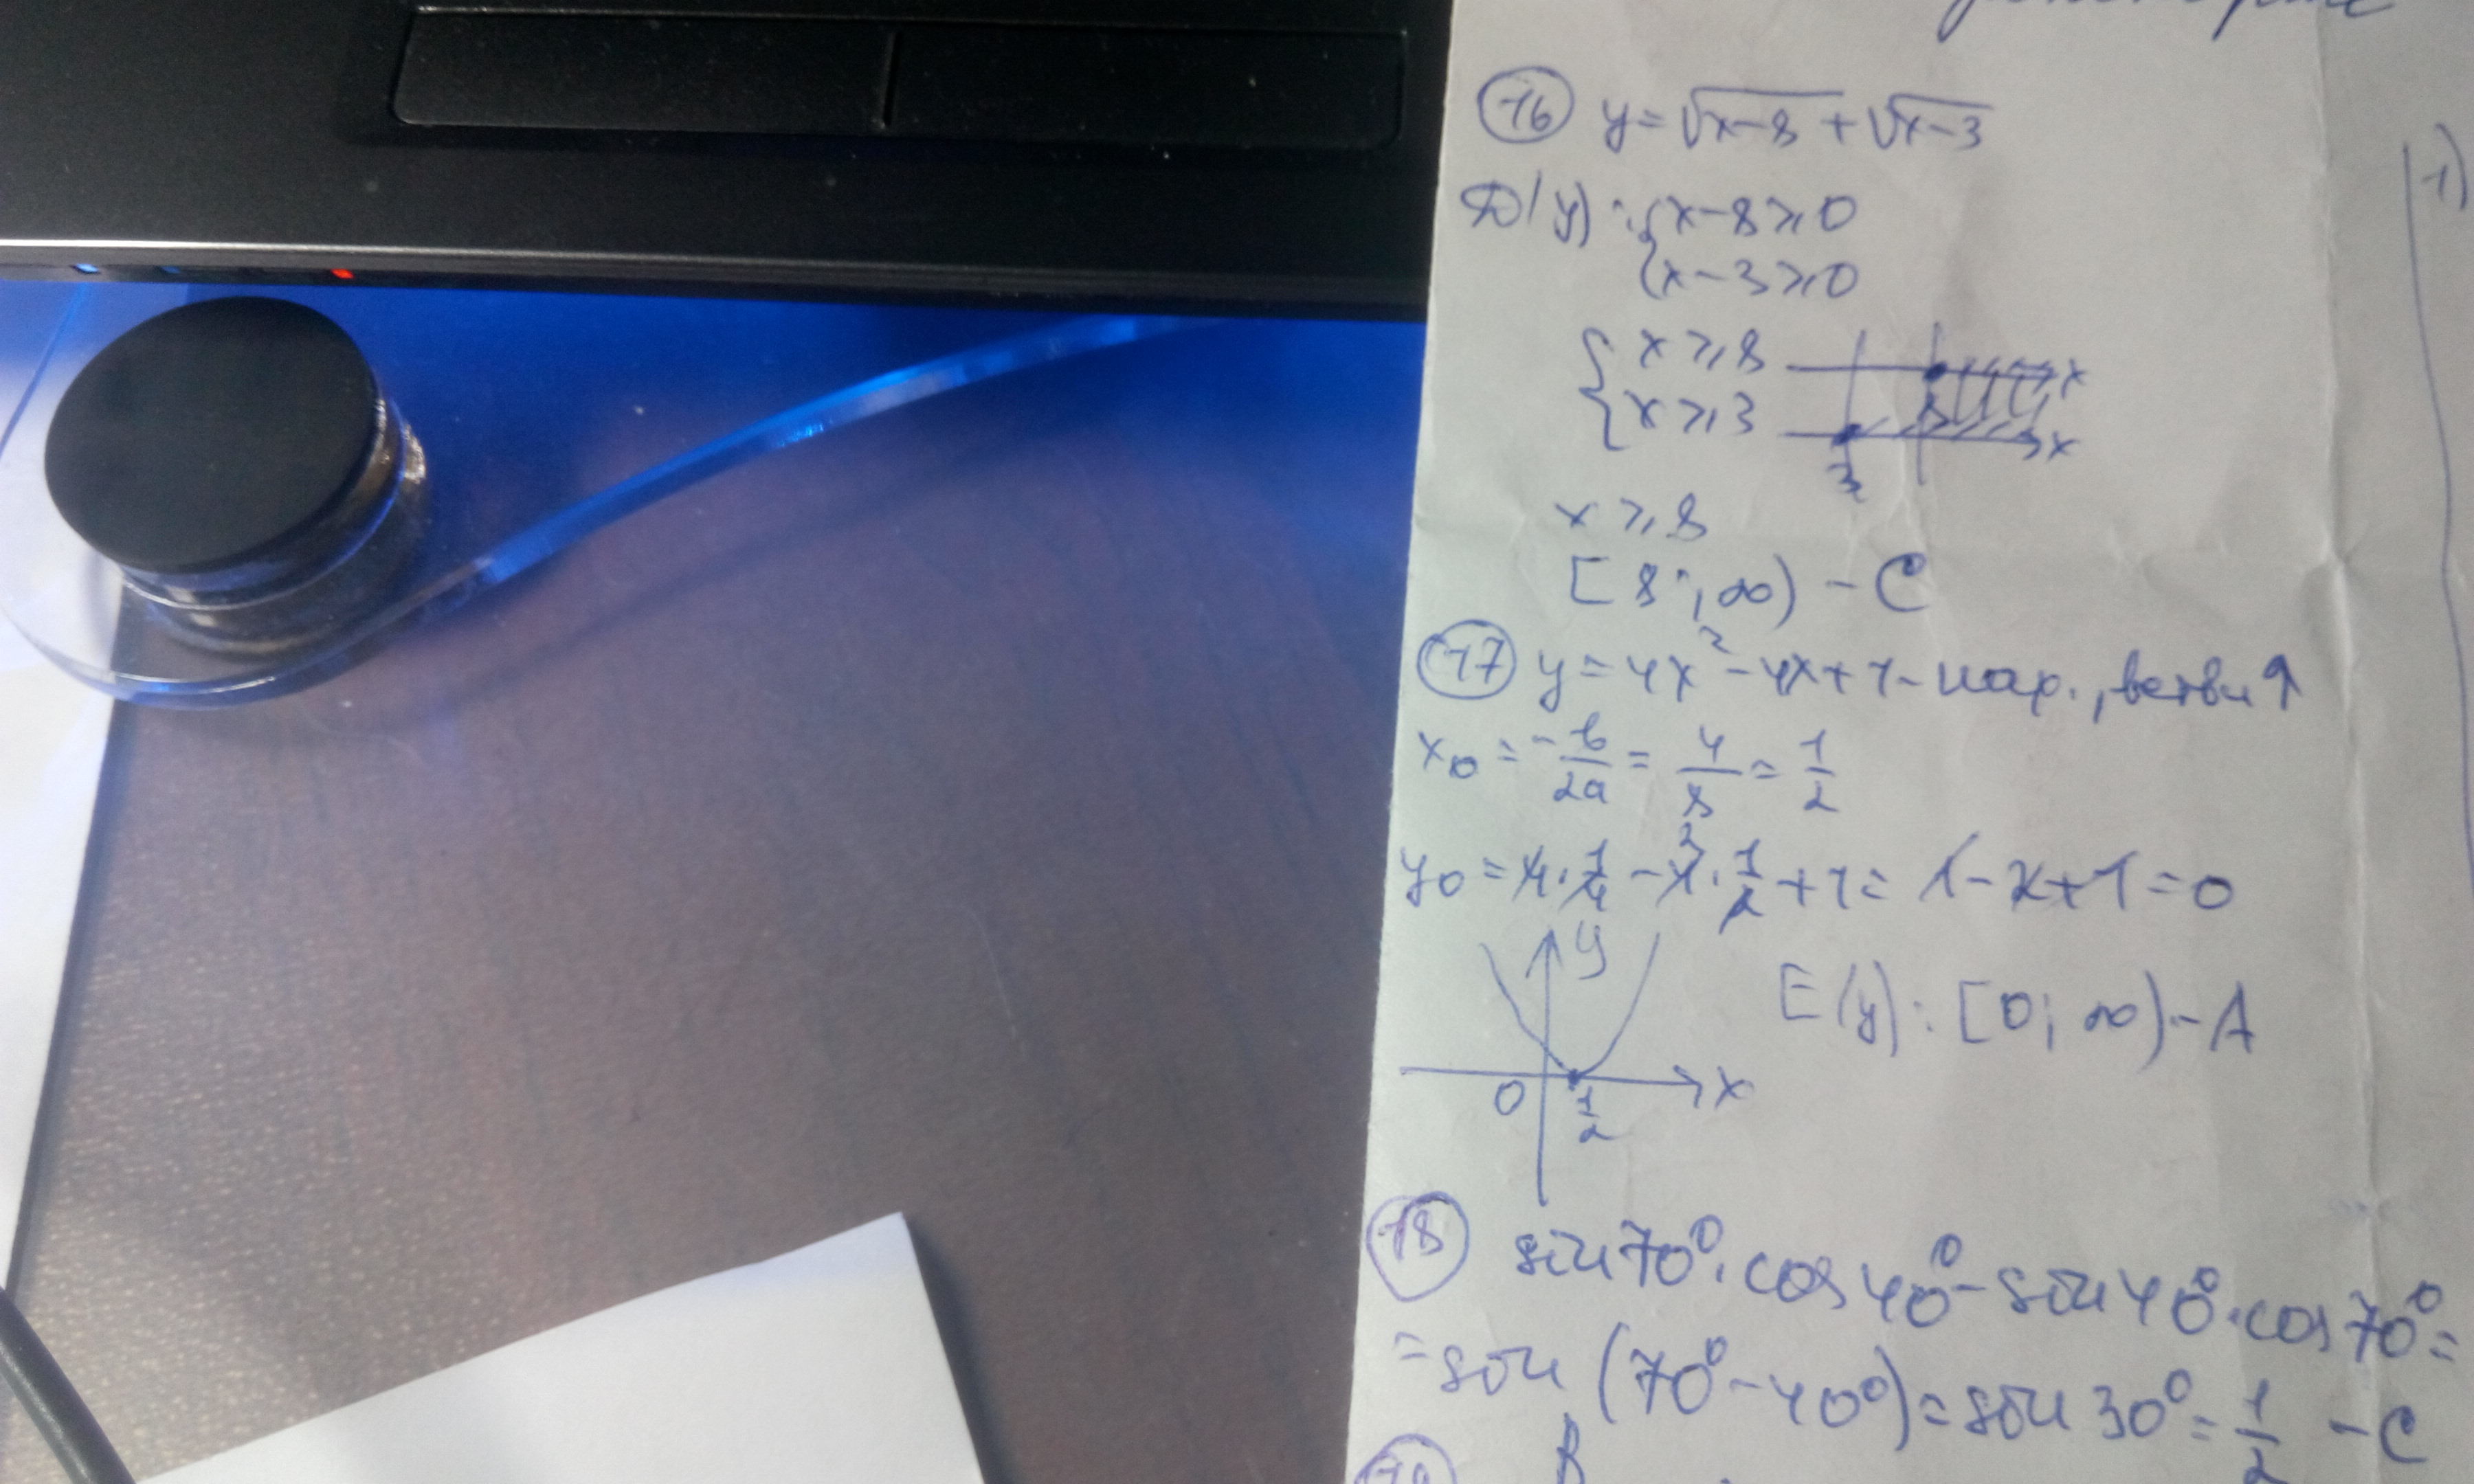 16 y = √x-8 + √x-3
D(y): { x-8 ≥ 0
{ x-3 ≥ 0
{ x ≥ 8 x
{ x ≥ 3 8 x
3
x ≥ 8
[8; ∞) - C
17 y = 4x² - 4x + 1 - пар., ветви ↑
x₀ = -b/2a = 4/8 = 1/2
y₀ = 4·1/4 - 4·1/2 + 1 = 1 - 2 + 1 = 0
y
E(y): [0; ∞) - A
0 1/2 x
18 sin 70°·cos 40° - sin 40°·cos 70° =
= sin (70° - 40°) = sin 30° = 1/2 - C
19 B
1)